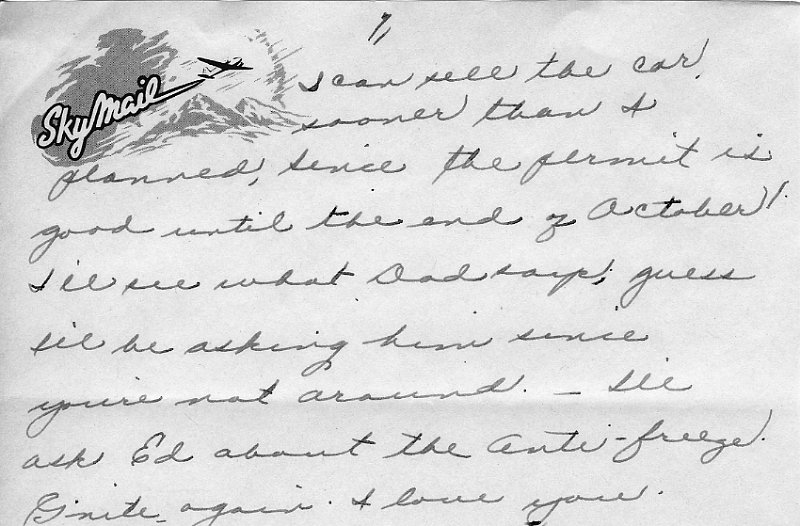 7,
Sky Mail
I can sell the car
sooner than I
planned, since the permit is
good until the end of October!
I'll see what Dad says, guess
I'll be asking him since
you're not around. – I'll
ask Ed about the anti-freeze.
G'nite again. I love you.